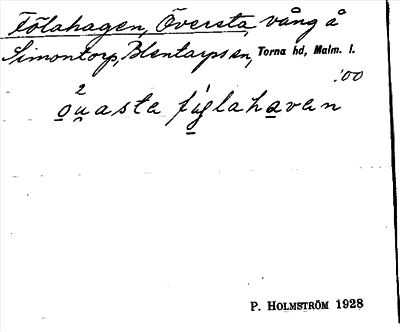 Fölahagen, Översta, vång å
Simontorp, Blentarps sn, Torna hd, Malm. l.
:00
2
o̱u̱asta fi̱glaha̱van
P. HOLMSTRÖM 1928